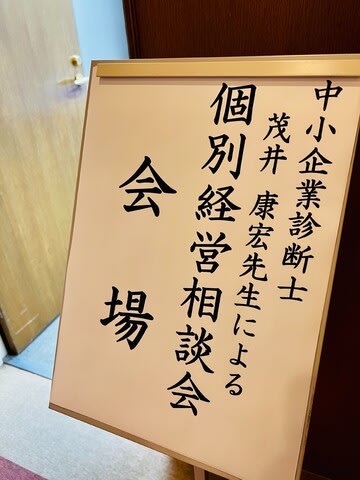 中小企業診断士
茂井 康宏先生による
個別経営相談会
会場